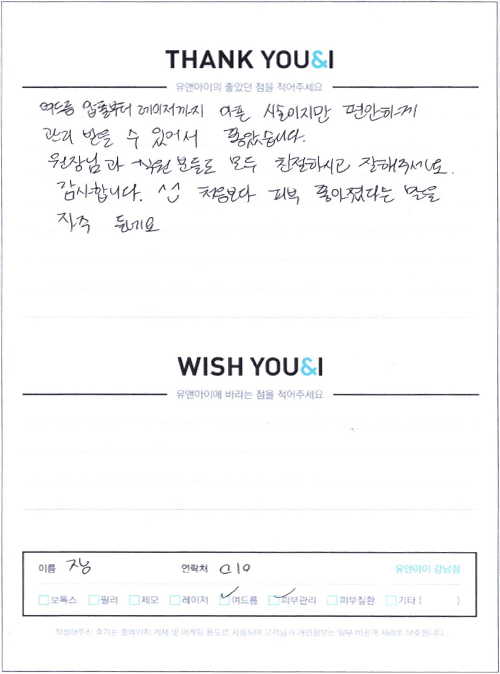 THANK YOU&I
유앤아이의 좋았던 점을 적어주세요
여드름 압출부터 레이저까지 아픈 시술이지만 편안하게
관리 받을 수 있어서 좋았습니다.
원장님과 직원 분들도 모두 친절하시고 잘해주세요.
감사합니다. ^^ 처음보다 피부 좋아졌다는 말을
자주 듣네요
WISH YOU&I
유앤아이에 바라는 점을 적어주세요
이름 연락처 010 유앤아이 강남점
보톡스 필러 제모 레이저 여드름 피부관리 피부질환 기타 ( )
작성해주신 후기는 홈페이지 게재 및 마케팅 용도로 사용되며 고객님의 개인정보는 일부 비공개 처리로 보호됩니다.